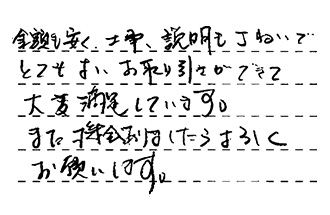 金額も安く、工事、説明もていねいで
とてもよい、お取り引きができて
大変満足しています。
また機会がありましたらよろしく
お願いします。